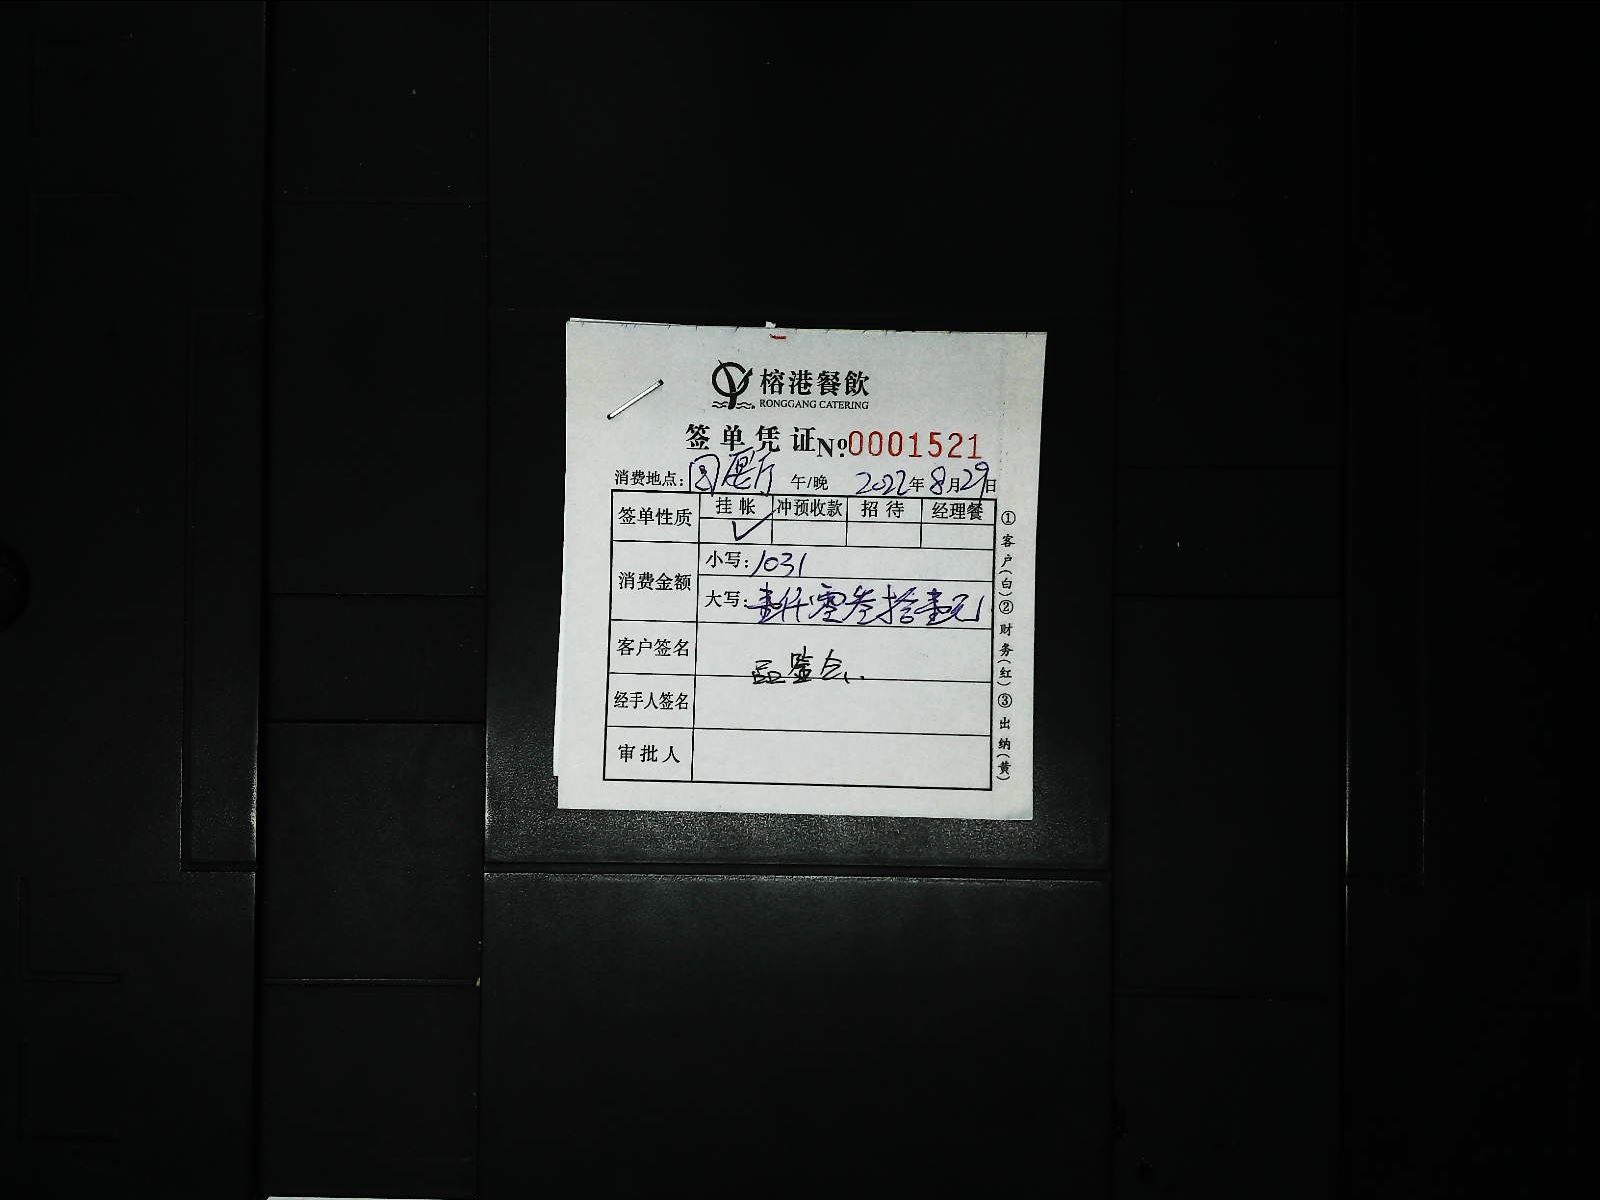 榕港餐飲
RONGGANG CATERING
签单凭证 No 0001521
消费地点: 厅 午/晚 2022年8月29日
签单性质 挂帐 冲预收款 招待 经理餐
✓
消费金额 小写: 1031
大写: 壹仟零叁拾壹元
客户签名 品鉴会
经手人签名
审批人
①客户(白)②财务(红)③出纳(黄)